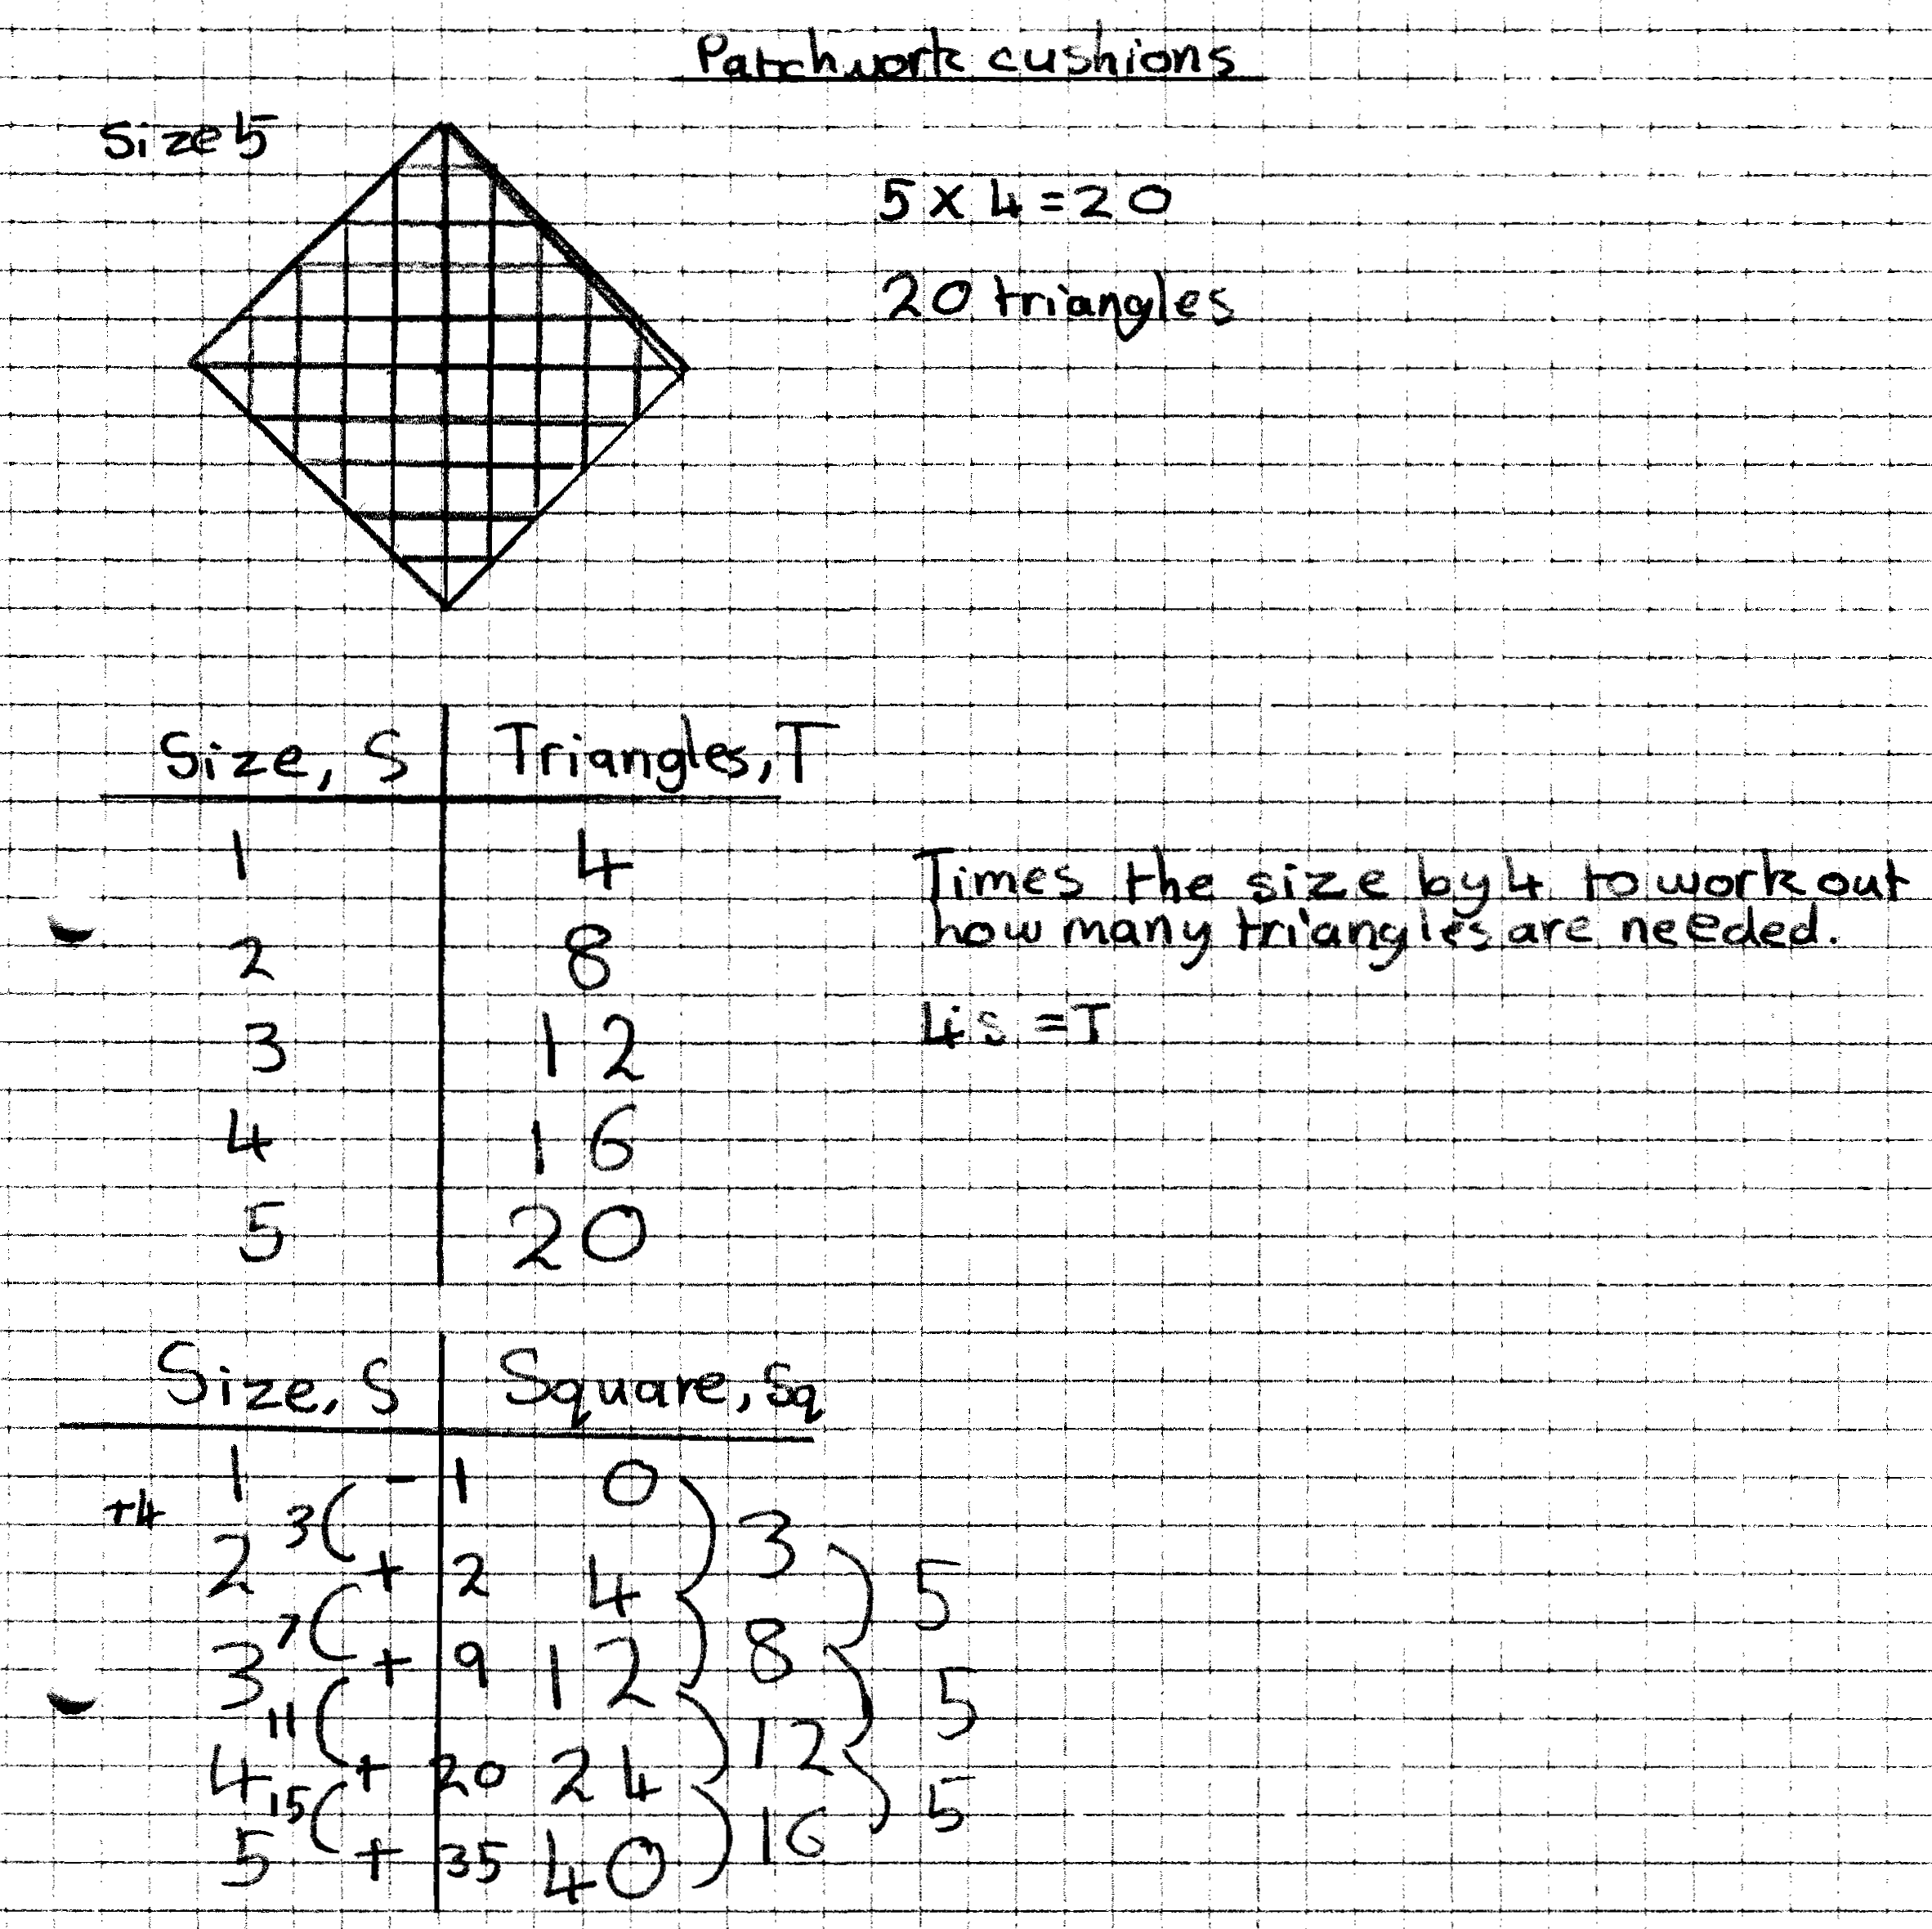 Patchwork cushions
Size 5
5 x 4 = 20
20 triangles
Size, S Triangles, T
1 4
2 8
3 12
4 16
5 20
Times the size by 4 to work out
how many triangles are needed.
4s = T
Size, S Square, Sq
1 - 1 0
+4 3 3
2 + 2 4 5
7 8
3 + 9 12 5
11 12
4 + 20 24 5
15 16
5 + 35 40